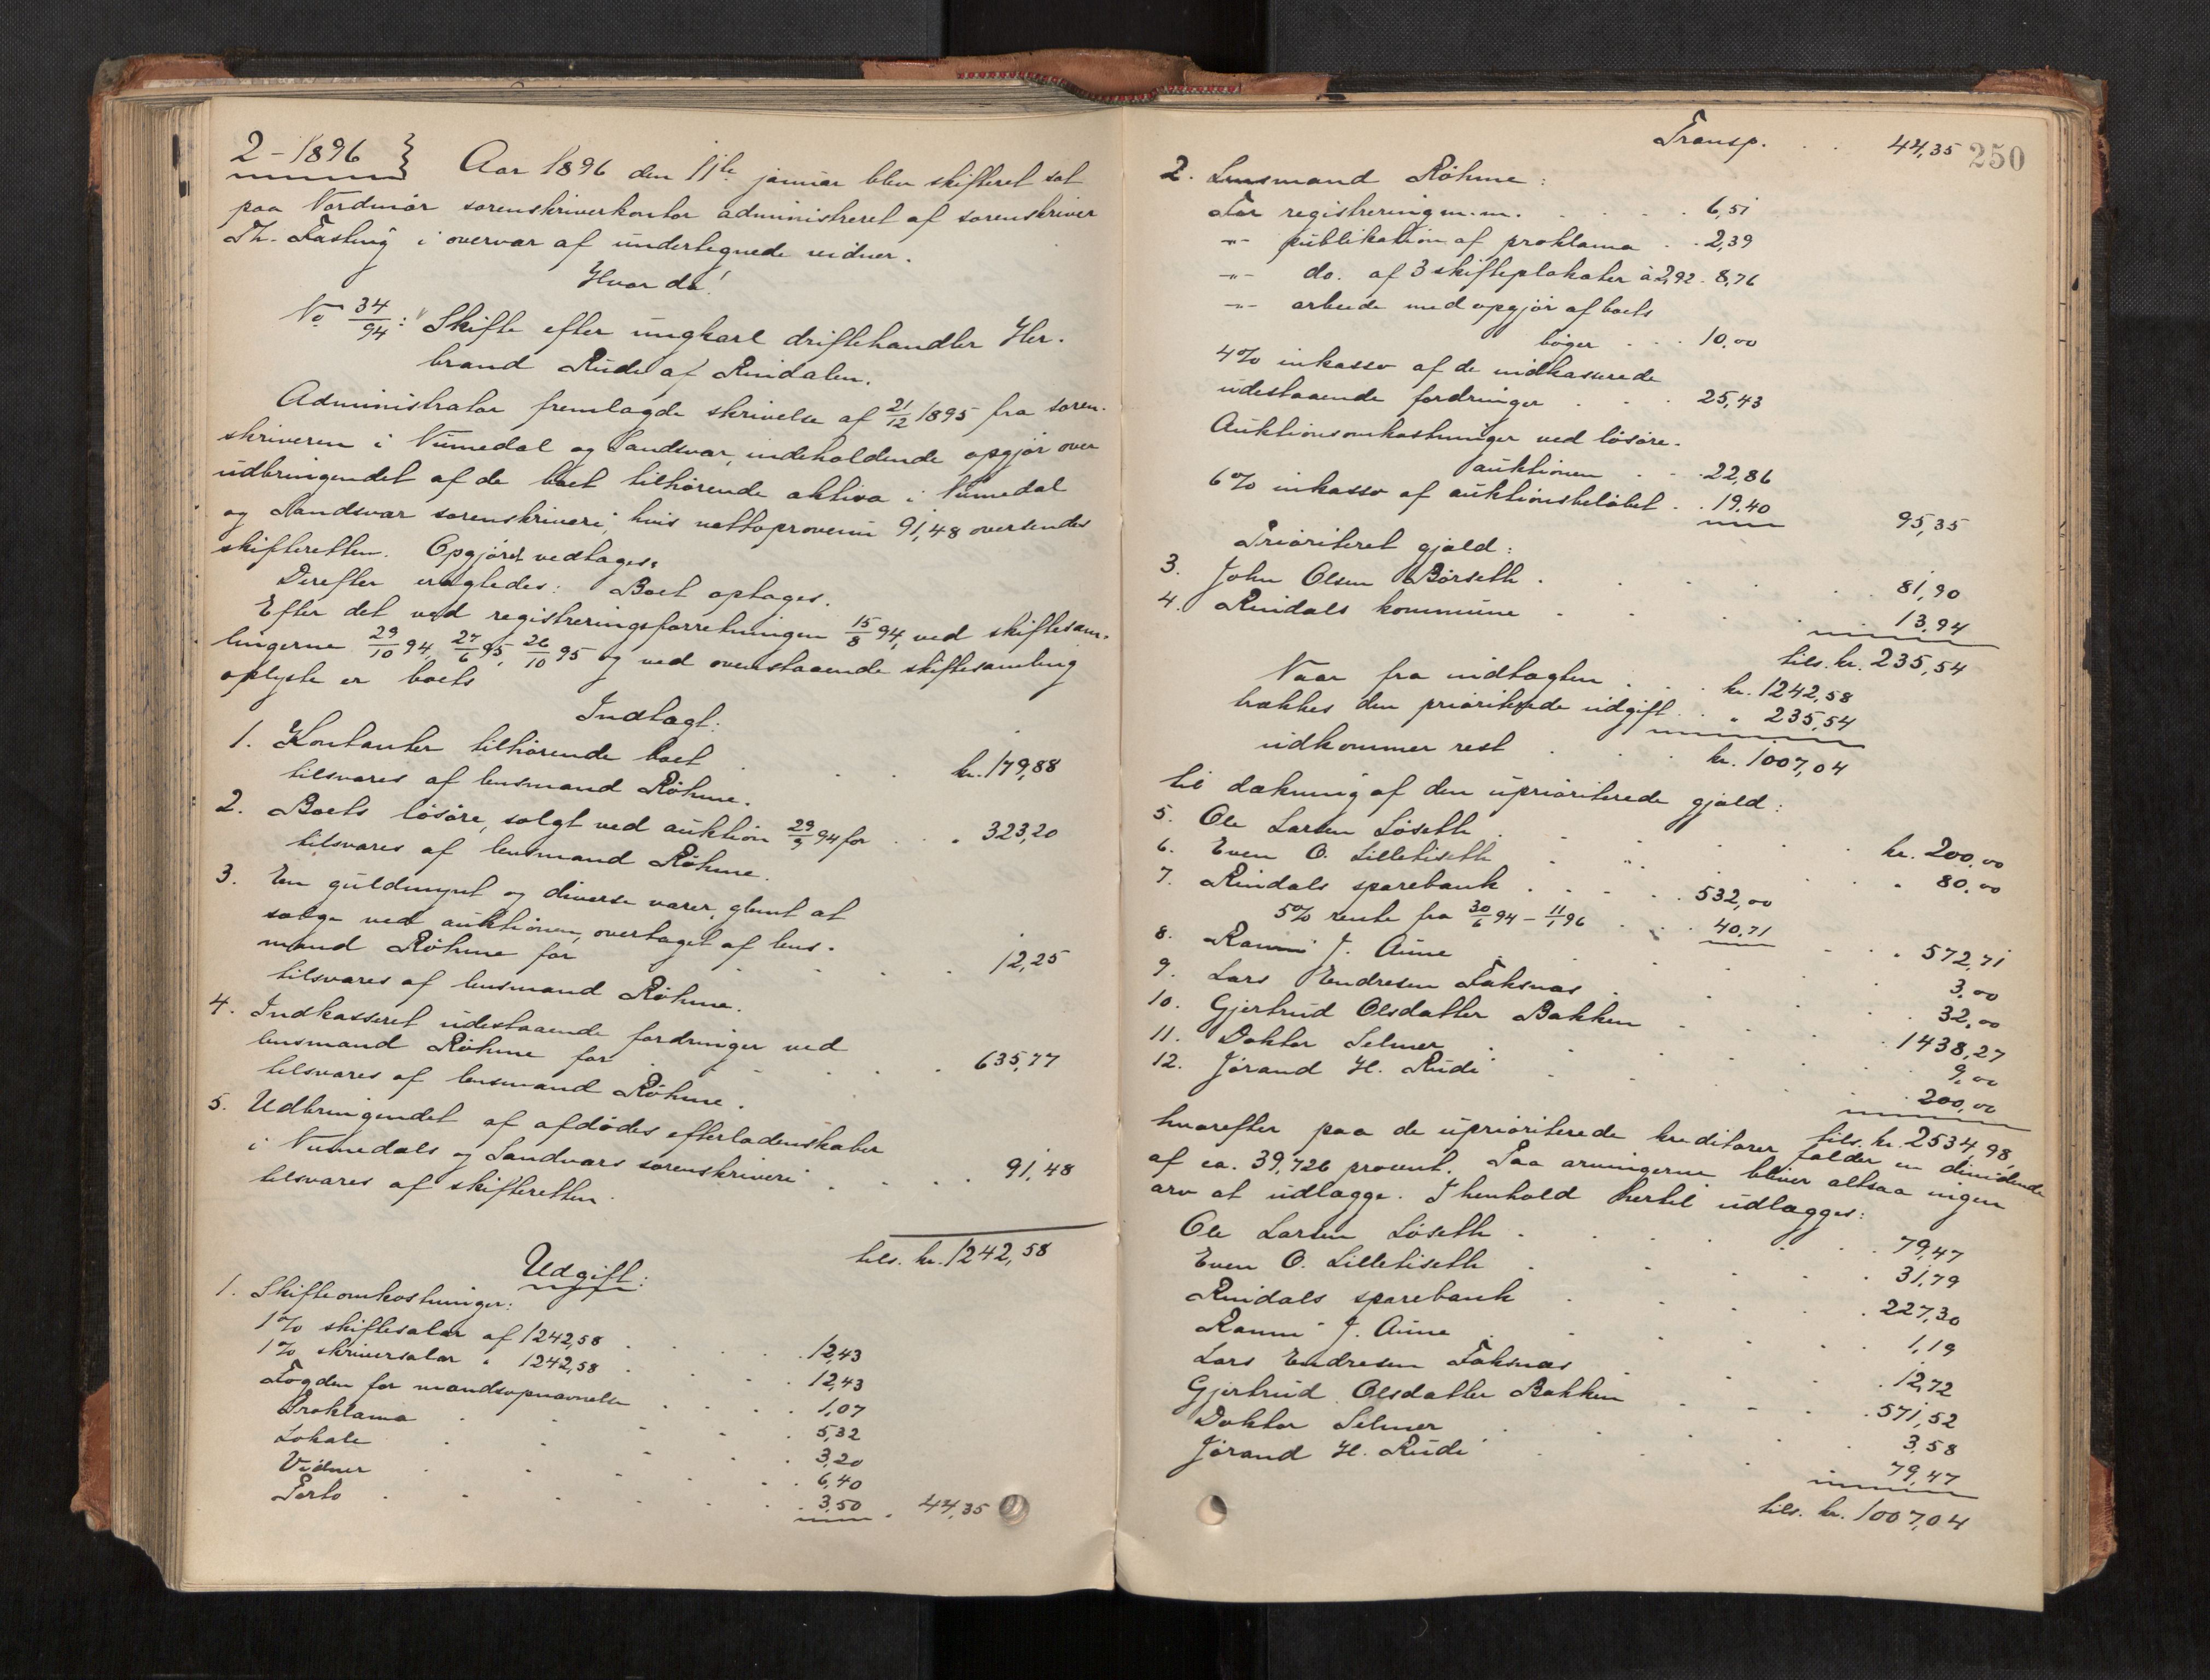 2 - 1896 } Aar 1896 den 11te januar blev skifteret sat
paa Nordmør sorenskriverkontor administreret af sorenskriver
Th. Fasting i overvær af undertegnede vidner.
Hvor da!
No 34/94: Skifte efter ungkarl driftehandler Her-
brand Rude af Rindalen.
Administrator fremlagde skrivelse af 21/12 1895 fra soren-
skriveren i Numedal og Sandsvær, indeholdende opgjør over
udbringendet af de boet tilhørende aktiva i Numedal
og Sandsvær sorenskriveri, hvis nettoprovenu 91,48 oversendes
skifteretten. Opgjøret vedtages.
Derefter eragtedes: Boet optages.
Efter det ved registreringsforretningen 15/8 94, ved skiftesam-
lingerne 29/10 94, 27/6 95, 26/10 95 og ved ovenstaaende skiftesamling
oplyste er boets
Indtægt:
1. Kontanter tilhørende boet . . . kr. 179,88
tilsvares af lensmand Røhme.
2. Boets løsøre, solgt ved auktion 29/9 94 for . . " 323,20
tilsvares af lensmand Røhme.
3. En guldmynt og diverse varer, glemt at
sælge ved auktionen, overtaget af lens-
mand Røhme for . . . . 12,25
tilsvares af lensmand Røhme.
4. Indkasseret udestaaende fordringer ved
lensmand Røhme for . . . . 635,77
tilsvares af lensmand Røhme.
5. Udbringendet af afdødes efterladenskaber
i Numedals og Sandsværs sorenskriveri . . . . 91,48
tilsvares af skifteretten.
tils. kr. 1242,58
Udgift:
1. Skifteomkostninger:
1% skiftesalær af 1242,58 . . . . 12,43
1% skriversalær " 1242,58 . . . . 12,43
Fogden for mandsopnævnelse . . . . 1,07
Proklama . . . . 5,32
Lokale . . . . 3,20
Vidner . . . . 6,40
Porto . . . . 3,50 . 44,35
Transp. . . 44,35
250
2. Lensmand Røhme:
For registrering m.m. . . . . 6,51
-"- publikation af proklama . . 2,39
-"- do. af 3 skifteplakater à 2,92 . 8,76
-"- arbeide med opgjør af boets
bøger . . . 10,00
4% inkasso af de indkasserede
udestaaende fordringer . . . 25,43
Auktionsomkostninger ved løsøre-
auktionen . . . 22,86
6% inkasso af auktionsbeløbet . . 19,40
95,35
Prioriteret gjæld:
3. John Olsen Børseth . . . . 81,90
4. Rindals kommune . . . . 13,94
tils. kr. 235,54
Naar fra indtægten . . . kr. 1242,58
trækkes den prioriterede udgift . . " 235,54
udkommer rest . . . kr. 1007,04
til dækning af den uprioriterede gjæld:
5. Ole Larsen Løseth . . . . kr. 200,00
6. Even O. Lillebiseth . . . . " 80,00
7. Rindals sparebank . . . . 532,00
5% rente fra 30/6 94 - 11/1 96 . . . 40,71
" 572,71
8. Ranni J. Aune . . . . 3,00
9. Lars Endresen Faksnæs . . . . 32,00
10. Gjertrud Olsdatter Bakken . . . . 1438,27
11. Doktor Selmer . . . . 9,00
12. Jørand H. Rudi . . . . 200,00
tils. kr. 2534,98,
hvorefter paa de uprioriterede kreditorer falder en dividende
af ca. 39,726 procent. Paa arvingerne bliver altsaa ingen
arv at udlægge. I henhold hertil udlægges:
Ole Larsen Løseth . . . . 79,47
Even O. Lillebiseth . . . . 31,79
Rindals sparebank . . . . 227,30
Ranni J. Aune . . . . 1,19
Lars Endresen Faksnæs . . . . 12,72
Gjertrud Olsdatter Bakken . . . . 571,52
Doktor Selmer . . . . 3,58
Jørand H. Rudi . . . . 79,47
tils. kr. 1007,04